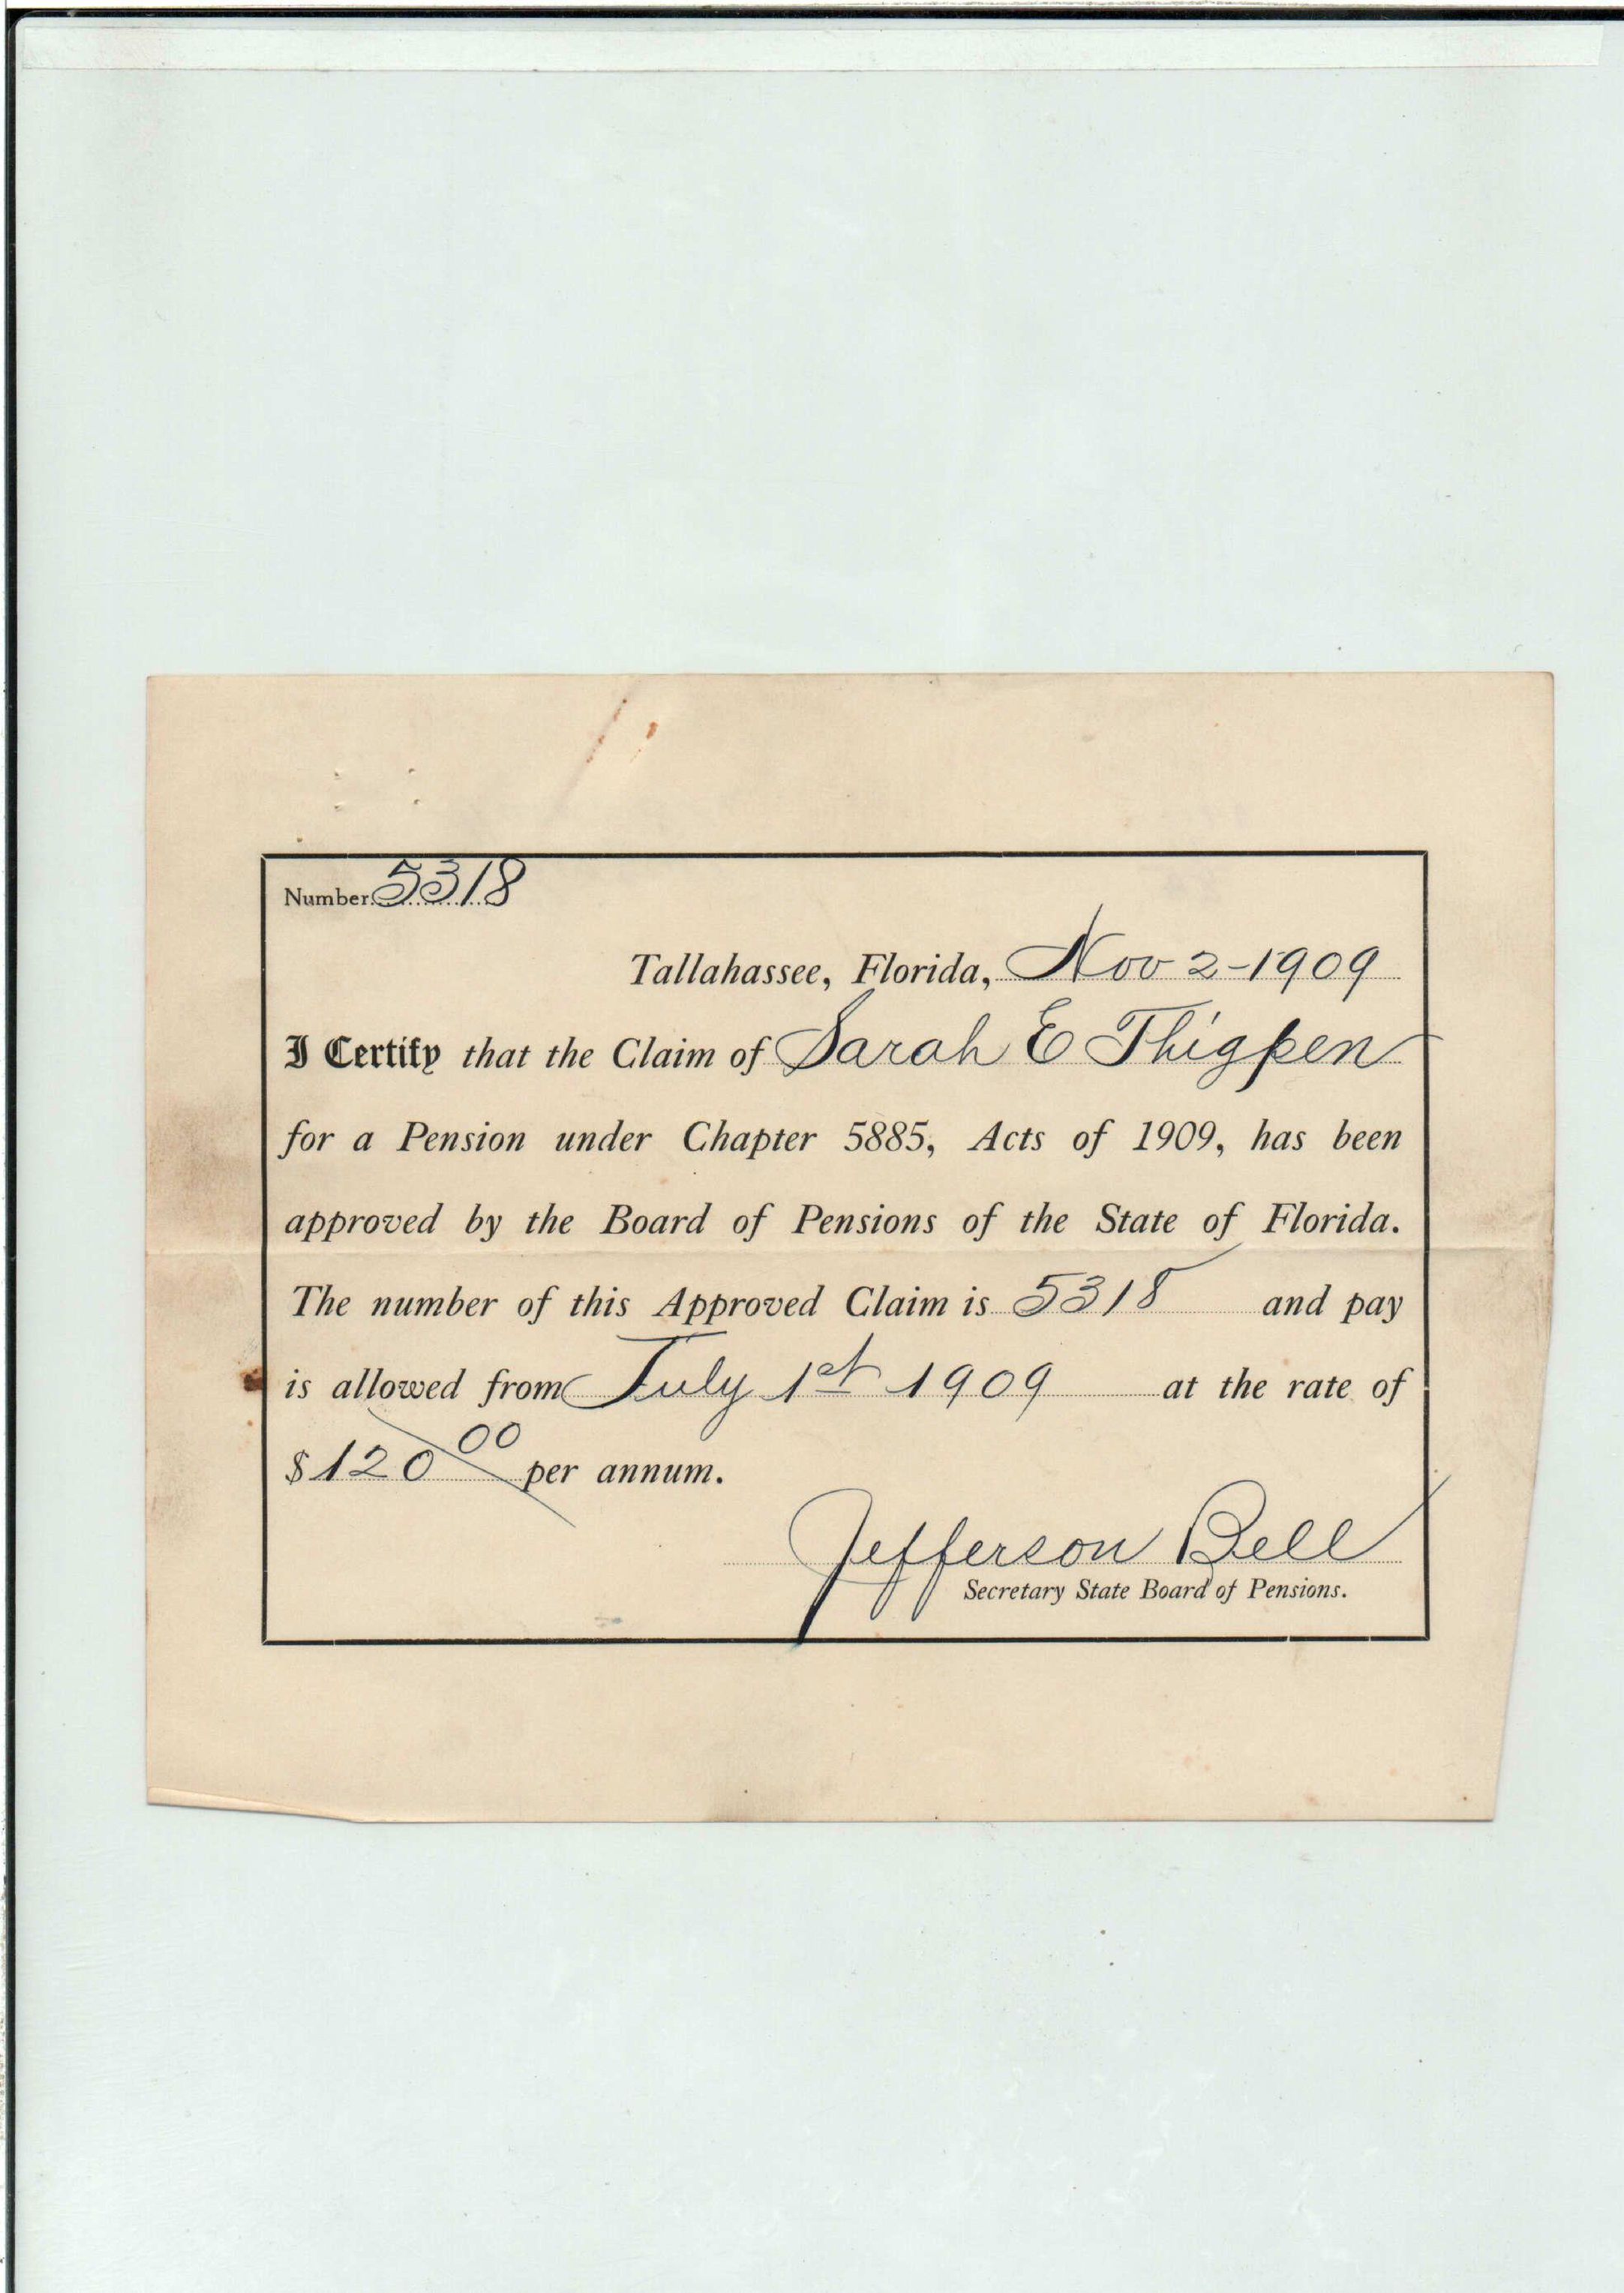 Number 5318
Tallahassee, Florida, Nov 2-1909
I Certify that the Claim of Sarah E Thigpen
for a Pension under Chapter 5885, Acts of 1909, has been
approved by the Board of Pensions of the State of Florida.
The number of this Approved Claim is 5318 and pay
is allowed from July 1st 1909 at the rate of
$120 00 per annum.
Jefferson Bell
Secretary State Board of Pensions.